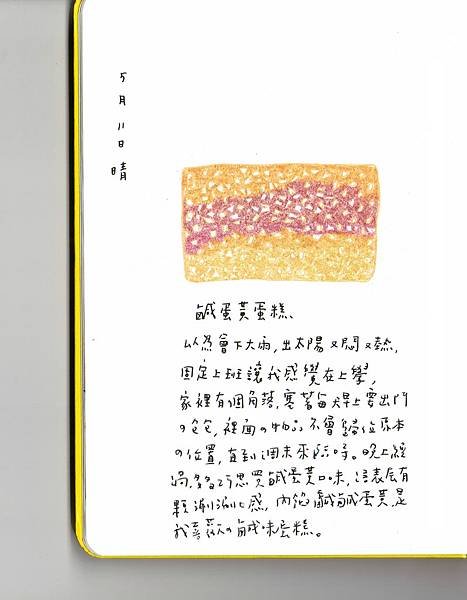 5月11日 晴
鹹蛋黃蛋糕、
以為會下大雨,出太陽又悶又熱,
固定上班讓我感覺在上學,
家裡有個角落,塞著每天早上要出門
の包包,裡面の物品不會歸位原本
の位置,直到週末來臨時。晚上經
過多巧思買鹹蛋黃口味,表層有
顆涮涮心感,內餡鹹鹹蛋黃,是
我喜歡の鹹味蛋糕。